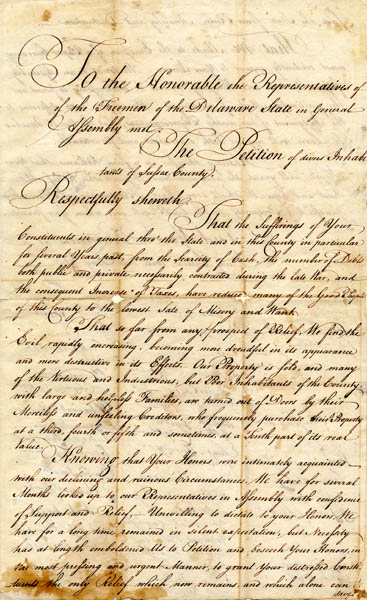 To the Honorable the Representatives of
of the Freemen of the Delaware State in General
Assembly met.
The Petition of divers Inhabi
tants of Sussex County.
Respectfully sheweth
That the Sufferings of Your
Constituents in general thro' the State and in this County in particular
for several Years past, from the Scarcity of Cash, the number of Debts
both public and private necessarily contracted during the late War, and
the consequent Increase of Taxes, have reduced many of the Good People
of this County to the lowest State of Misery and Want.
That so far from any prospect of Relief, We find the
Evil rapidly increasing, becoming more dreadful in its appearance
and more destructive in its Effects. Our Property is sold, and many
of the Virtuous and Industrious, but Poor Inhabitants of the County
with large and helpless Families, are turned out of Doors by their
Merciless and unfeeling Creditors, who frequently purchase their Property
at a third, fourth or fifth and sometimes at a Tenth part of its real
Value.
Knowing that Your Honors were intimately acquainted
with our declining and ruinous Circumstances. We have for several
Months looked up to our Representatives in Assembly with confidence
of Support and Relief. Unwilling to dictate to your Honors, We
have for a long time remained in silent expectation, but Necessity
has at length emboldened Us to Petition and beseech Your Honors, in
the most pressing and urgent Manner, to grant Your distressed Consti
tuents the only Relief which now remains, and which alone can
save